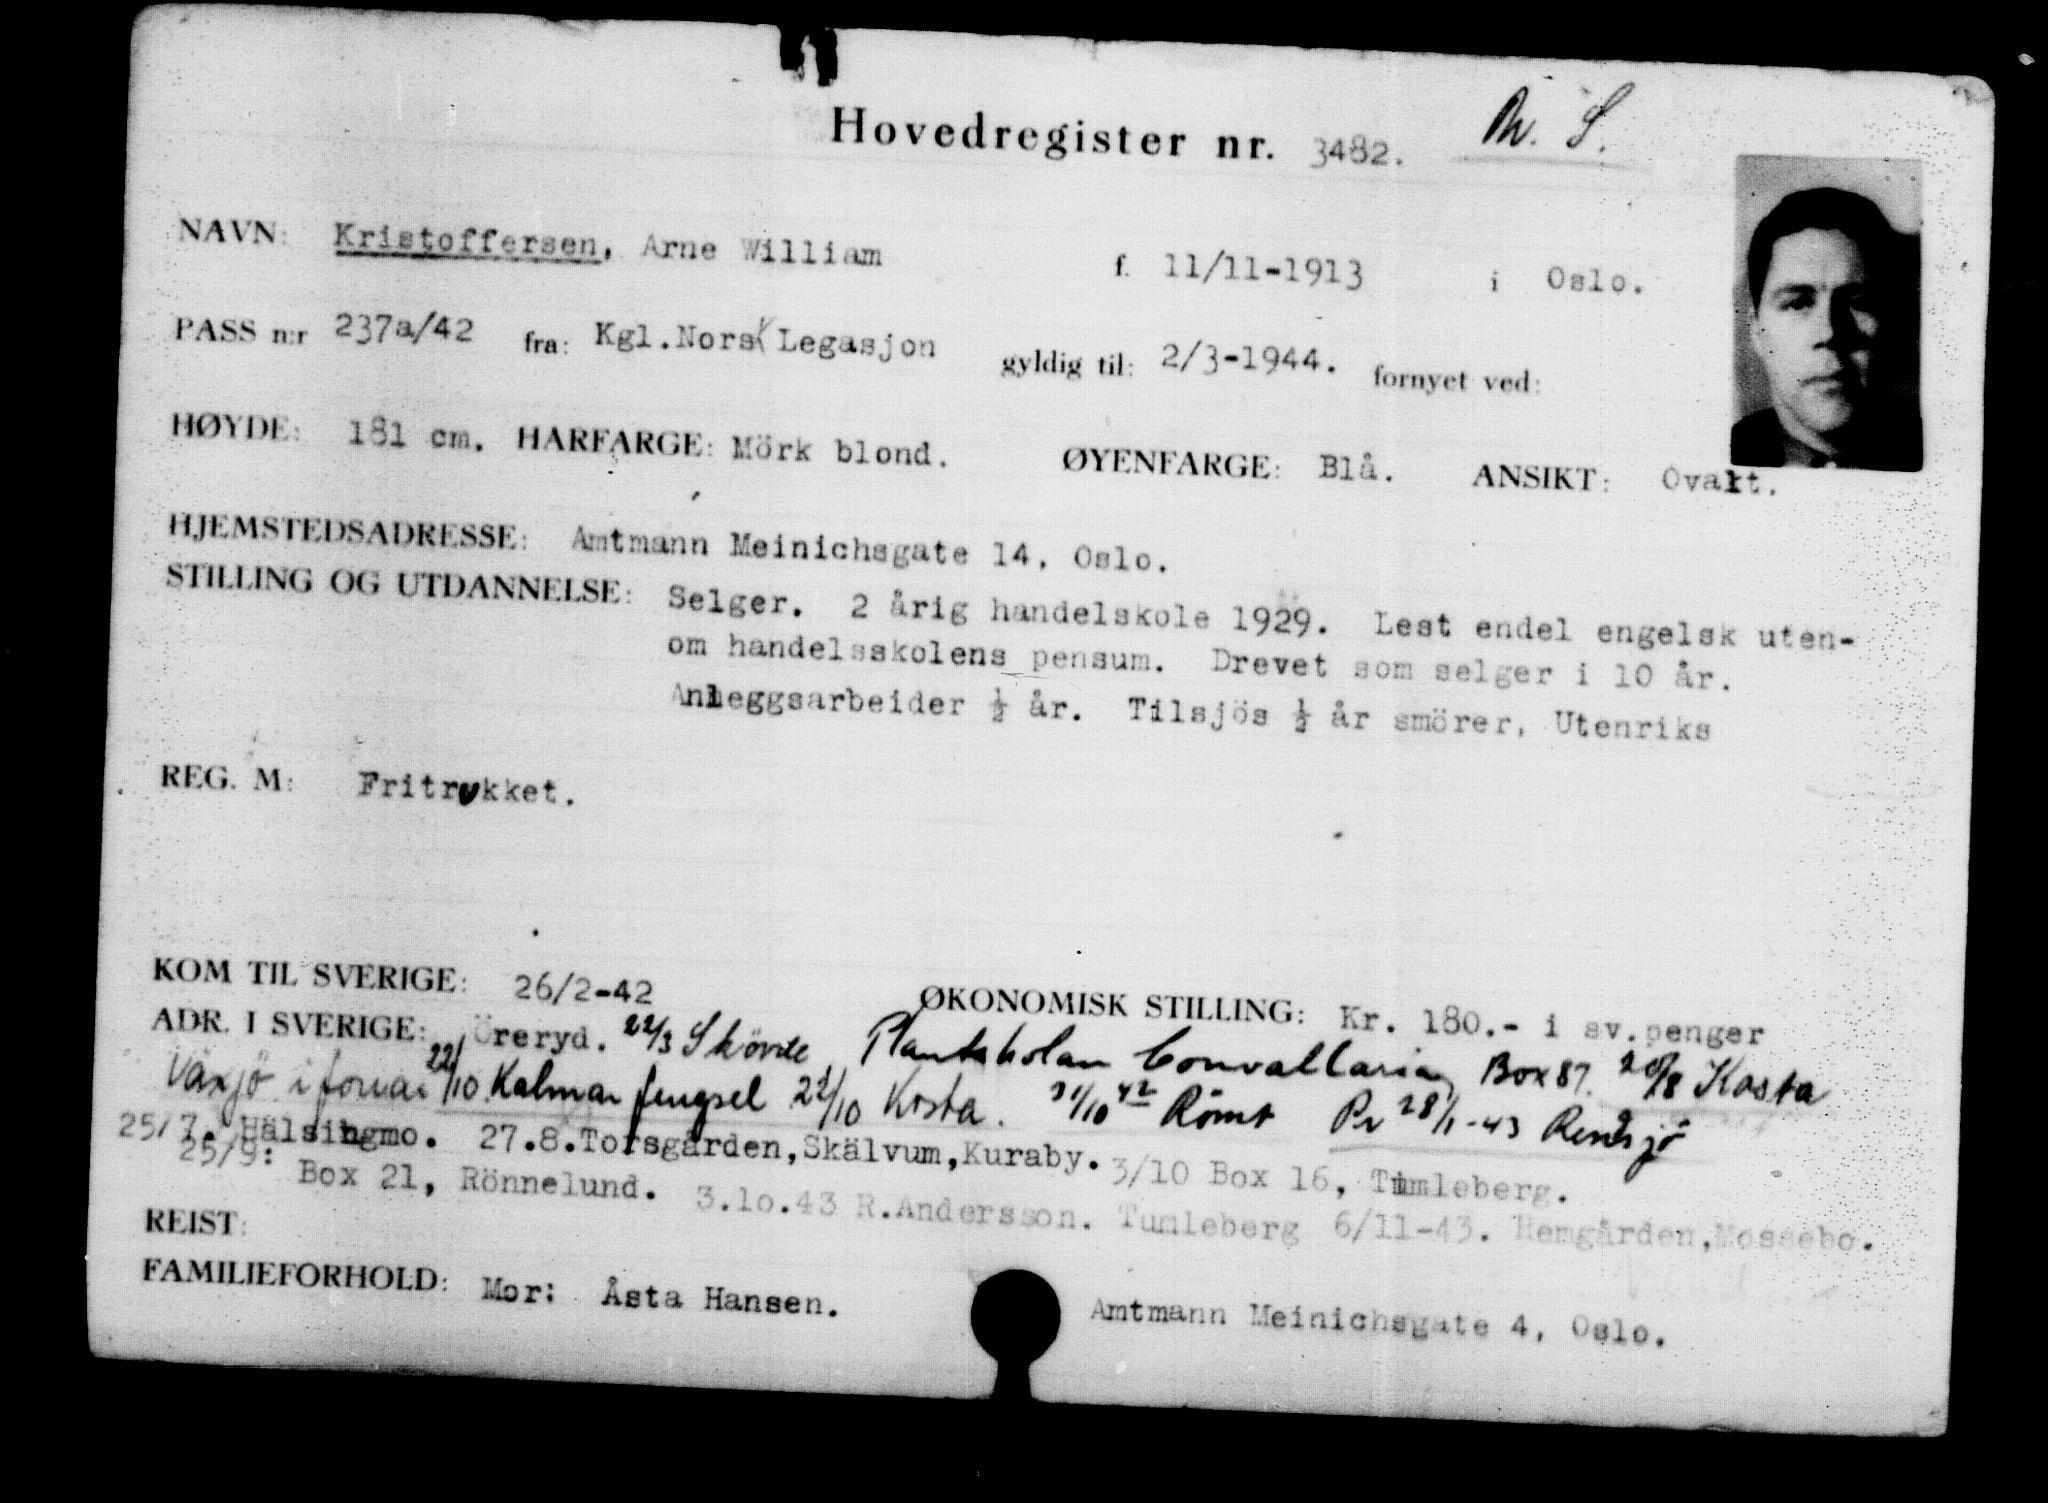 Hovedregister nr. 3482.
NAVN: Kristoffersen, Arne William f. 11/11-1913 i Oslo.
PASS n:r 237a/42 fra: Kgl.Norsk Legasjon gyldig til: 2/3-1944. fornyet ved:
HØYDE: 181 cm. HARFARGE: Mörk blond. ØYENFARGE: Blå. ANSIKT: Ovalt.
HJEMSTEDSADRESSE: Amtmann Meinichsgate 14, Oslo.
STILLING OG UTDANNELSE: Selger. 2 årig handelskole 1929. Lest endel engelsk uten-
om handelsskolens pensum. Drevet som selger i 10 år.
Anleggsarbeider ½ år. Tilsjös ½ år smörer, Utenriks
REG. M: Fritrukket.
KOM TIL SVERIGE: 26/2-42 ØKONOMISK STILLING: Kr. 180.- i sv.penger
ADR. I SVERIGE: Öreryd. 22/3 Skövde Plantskolan Convallaria, Box 87. Kosta
Växjö i forvar 22/10 Kalmar fengsel 22/10 Kosta. 31/10 42 Römt Pr 28/1-43 Rensjö
25/7. Hälsingmo. 27.8.Torsgården,Skälvum,Kuraby. 3/10 Box 16, Tumleberg.
25/9: Box 21, Rönnelund. 3.10.43 R.Andersson. Tumleberg 6/11-43. Hemgården,Mossebo.
REIST:
FAMILIEFORHOLD: Mor: Åsta Hansen. Amtmann Meinichsgate 4, Oslo.